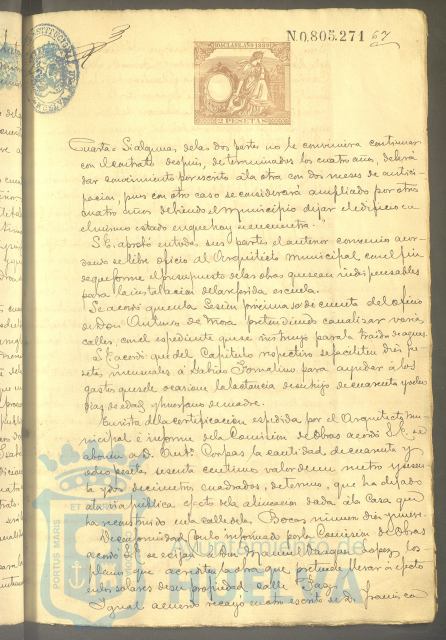 N.0,805.271 67
10A CLASE. AÑO 1889
2 PESETAS
Cuarta = Si alguna, de las dos partes no le conviniera continuar
con el contrato despues, de terminados los cuatro años, deberá
dar conocimiento por escrito a la otra con dos meses de antici-
pacion, pues con otro caso se considerará ampliado por otros
cuatro años debiendo el municipio dejar el edificio en
el mismo estado en que hoy se encuentra.
S.E. aprobó en todas sus partes el anterior convenio acor-
dando se libre oficio al Arquitecto municipal con el fin
de que forme el presupuesto de las obras que sean indispensables
para la instalacion de la referida escuela.
Se acordó que en la Sesion proxima se de cuenta del oficio
de Don Antonio de Mora pretendiendo canalizar varias
calles, con el expediente que se instruyó para la traida de aguas.
S.E. acordó que del Capitulo respectivo se faciliten diez pe-
setas mensuales á Sabian para ayudar á los
gastos que le ocasione la lactancia de su hijo de cuarenta y
dias de edad y huerfano de madre.
En vista de la certificacion expedida por el Arquitecto mu-
nicipal é informe de la Comision de Obras acordó S.E. se
abonen a D. Antº. la cantidad de cuarenta y
ocho pesetas, sesenta centimos valor de un metro y
ta y dos decimetros cuadrados, de terreno, que ha dejado
a la via pública efecto de la alineacion dada á la Casa que
ha reconstruido en la calle de la Bocas número diez y nueve.
De conformidad con lo informado por la Comision de Obras
acordó S.E. se exijan á Don Lopez, los
planos que acrediten la obra que pretende llevar á efecto
en los solares de su propiedad calle
Igual acuerdo recayó en un escrito de D. Francisco
PORTUS MARIS ET
Ayuntamiento de
HUELVA